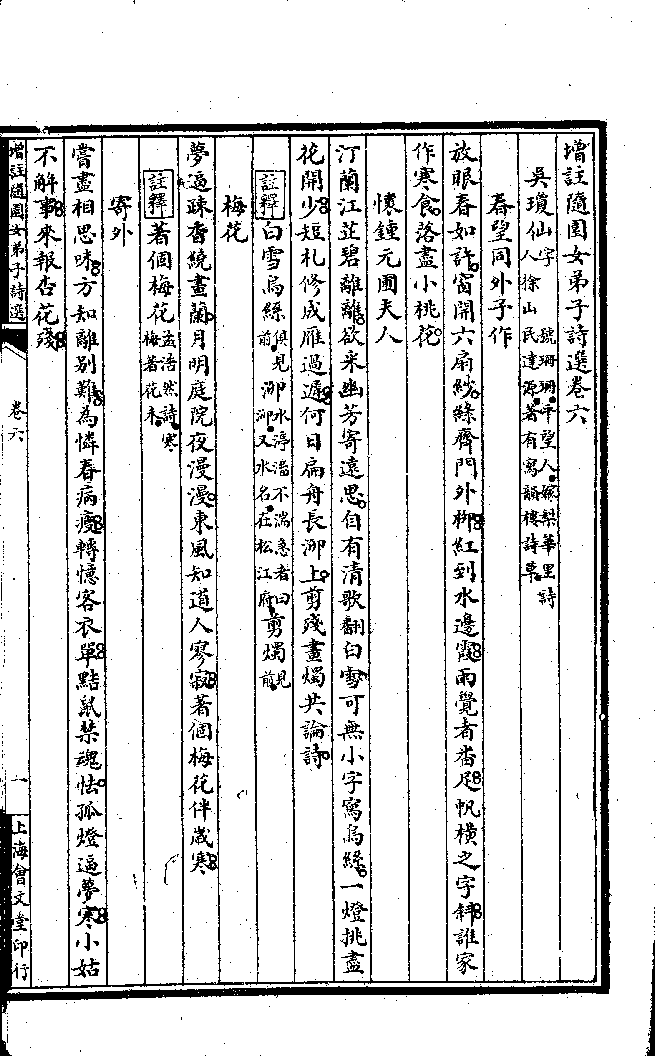 增註隨園女弟子詩選卷六
吳瓊仙字珊珊平望人嫁梨華里詩人徐山民達源著有寫韻樓詩草
春望同外子作
放眼春如許窗開六扇紗綠齊門外柳紅到水邊霞雨覺者番足帆橫之字斜誰家
作寒食落盡小桃花
懷鍾元圃夫人
汀蘭江芷碧離離欲采幽芳寄遠思自有清歌翻白雪可無小字寫烏絲一燈挑盡
花開少短札修成雁過遲何日扁舟長泖上剪殘畫燭共論詩
註釋白雪烏絲俱見前泖水渟滀不湍急者曰泖又水名在松江府剪燭見前
梅花
夢逼疎香繞畫蘭月明庭院夜漫漫東風知道人寥寂著個梅花伴歲寒
註釋著個梅花孟浩然詩寒梅著花未
寄外
嘗盡相思味方知離別難為憐春病瘦轉憶客衣單點鼠禁魂怯孤燈逼夢寒小姑
不解事來報杏花殘
增註隨園女弟子詩選
卷六
一
上海會文堂印行